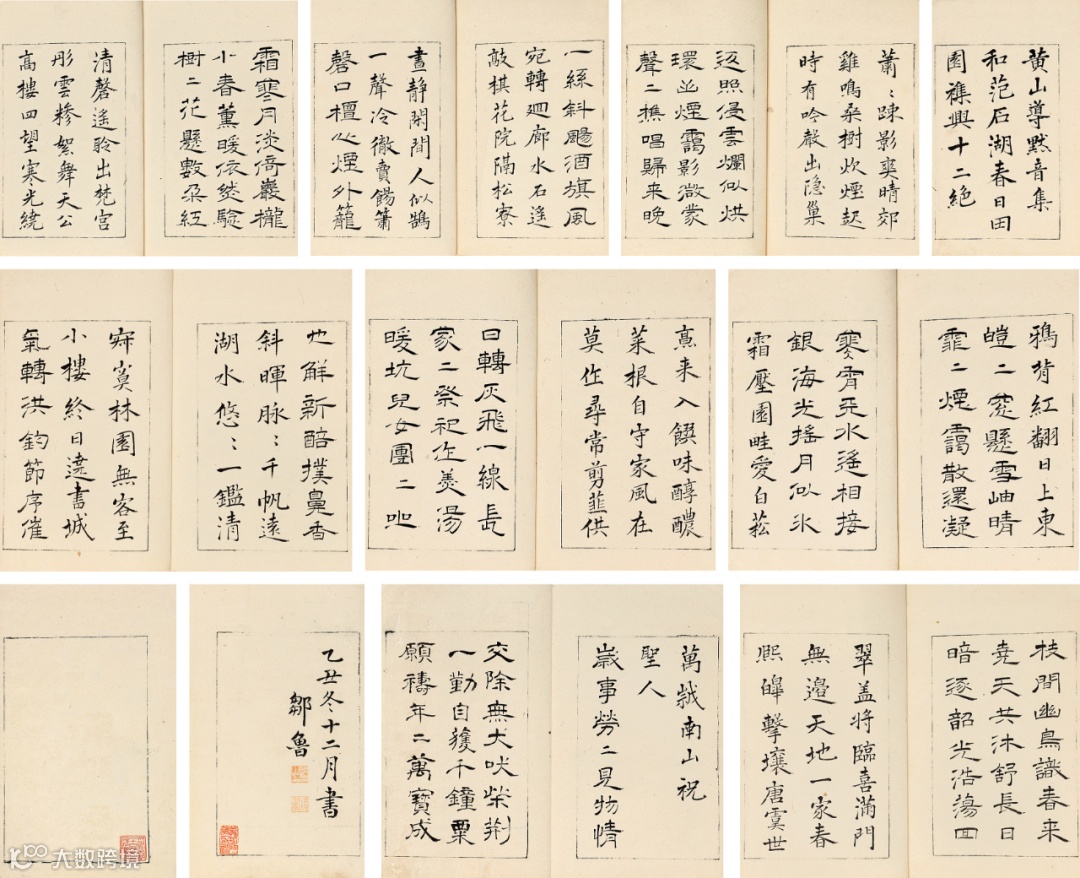 黄山導黙音集
和范石湖春日田
園襍興十二絶
蕭〻踈影奕晴郊
雞鳴桑樹炊煙起
時有吟聲出隐巢
返照侵雲爛似烘
環並煙靄影微蒙
聲二樵唱歸来晚
一絲斜颺酒旗風
宛轉廻廊水石遙
敲棋花院隔松寮
晝静閑間人似鵠
一聲冷徹賣餳簫
磬口檀心煙外籠
霜寒月淡倚巖櫳
小春薰暖依然驗
樹二花懸數朶紅
清磬遙聆出梵宮
彤雲糝絮舞天公
高樓四望寒光繞
鴉背紅翻日上東
皚二窓懸雪岫晴
霏二煙靄散還凝
寒霄天水遙相接
銀海光搖月似氷
霜壓園畦愛白菘
烹来入饌味醇醲
菜根自守家風在
莫作尋常剪韮供
日轉灰飛一線長
家二祭祀作羮湯
暖坑兒女團二
鮮新醅撲鼻香
斜暉脉〻千帆遠
湖水悠〻一鑑清
寂寞林園無客至
小樓終日遶書城
氣轉洪鈞節序催
枝間幽鳥識春来
堯天共沐舒長日
暗逐韶光浩蕩回
翠盖將臨喜滿門
無邊天地一家春
熙皞擊壤唐虞世
萬歲南山祝
聖人
歲事勞二見物情
交除無犬吠柴荆
一勤自獲千鐘粟
願禱年二萬寶成
乙丑冬十二月書
鄒魯
大数跨境